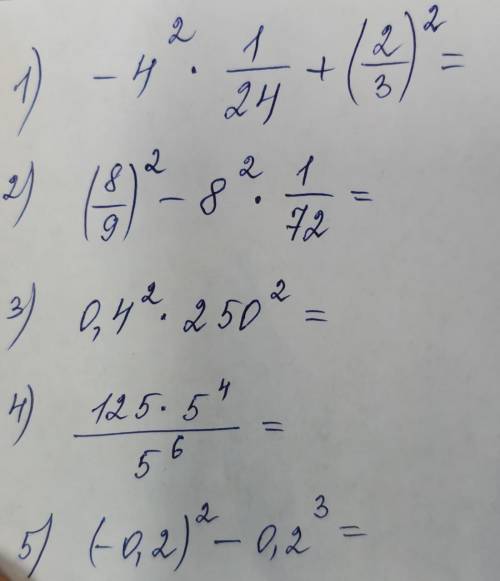 1) -4² · 1/24 + (2/3)² =
2) (8/9)² - 8² · 1/72 =
3) 0,4² · 250² =
4) 125 · 5⁴ / 5⁶ =
5) (-0,2)² - 0,2³ =